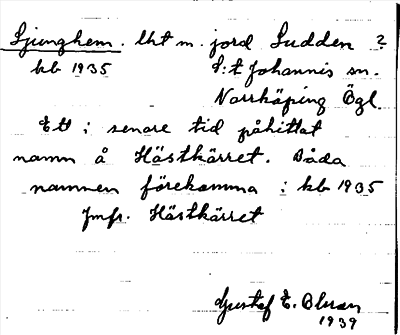 Ljunghem. lht m. jord Sudden 2
kb 1935 S:t Johannis sn.
Norrköping Ögl.
Ett i senare tid påhittat
namn å Hästkärret. Båda
namnen förekomma i kb 1935
Jmfr. Hästkärret
Gustaf E. Olsson
1939